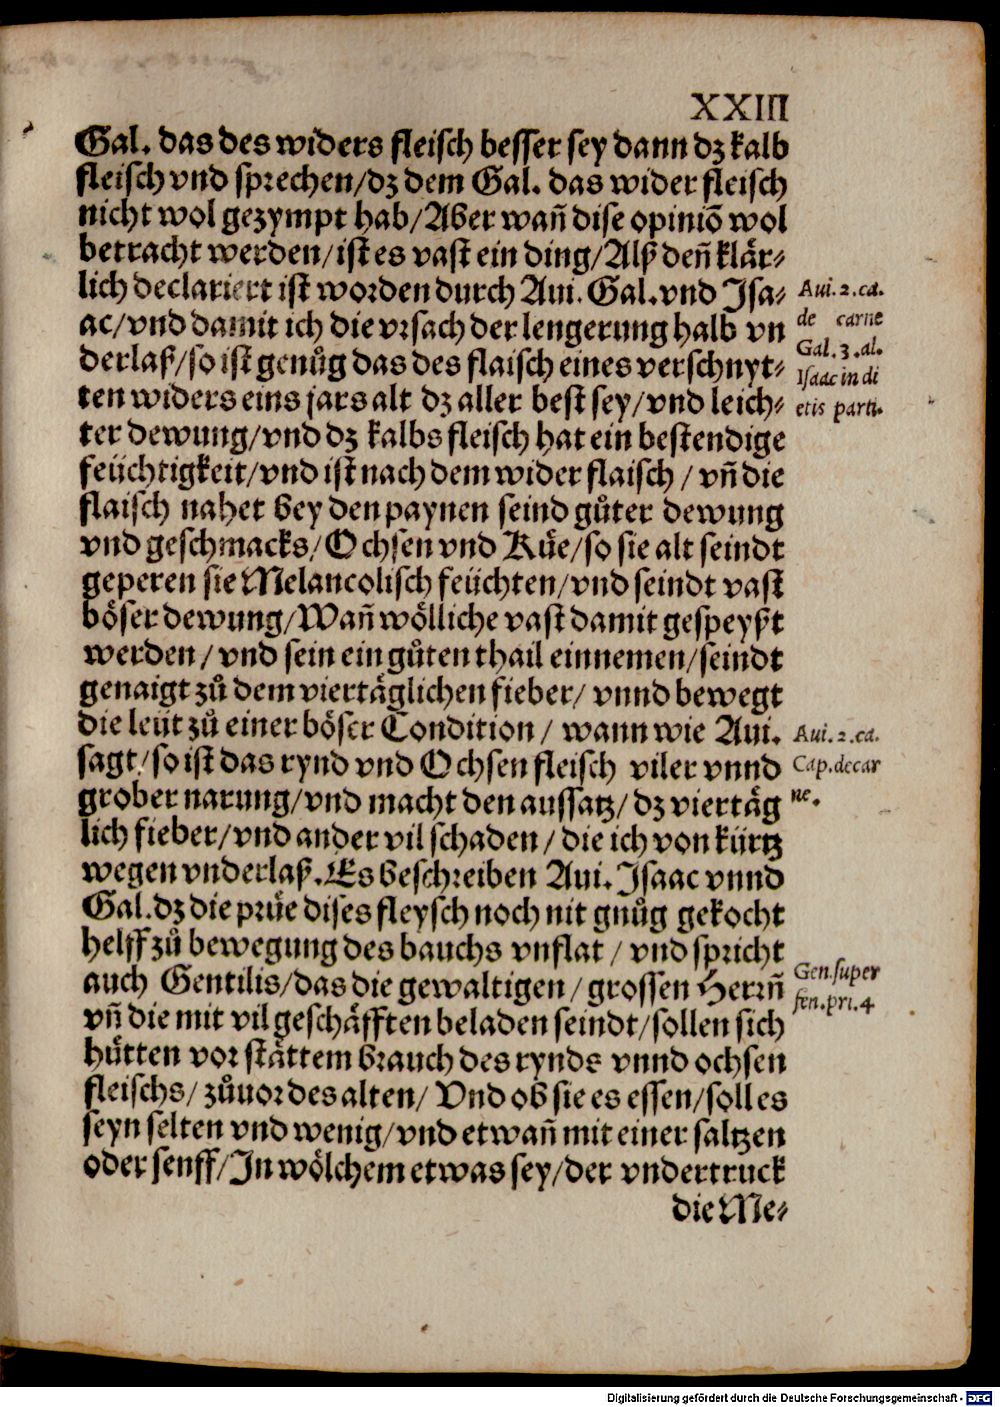 XXIII
Gal. das des widers fleisch besser sey dann dz kalb
fleisch vnd sprechen/dz dem Gal. das wider fleisch
nicht wol gezympt hab/Aber wañ dise opiniõ wol
betracht werden/ist es vast ein ding/Alß deñ klär⸗
lich declariert ist worden durch Aui. Gal. vnd Isa⸗
ac/vnd damit ich die vrsach der lengerung halb vn
derlaß/so ist genůg das des flaisch eines verschnyt⸗
ten widers eins jars alt dz aller best sey/vnd leich⸗
ter dewung/vnd dz kalbs fleisch hat ein bestendige
feüchtigkeit/vnd ist nach dem wider flaisch/vñ die
flaisch nahet bey den paynen seind gůter dewung
vnd geschmacks/Ochsen vnd Küe/so sie alt seindt
geperen sie Melancolisch feüchten/vnd seindt vast
böser dewung/Wañ wölliche vast damit gespeyßt
werden/vnd sein ein gůten thail einnemen/seindt
genaigt zů dem viertäglichen fieber/vnnd bewegt
die leüt zů einer böser Condition/wann wie Aui.
sagt/so ist das rynd vnd Ochsen fleisch viler vnnd
grober narung/vnd macht den aussatz/dz viertäg
lich fieber/vnd ander vil schaden/die ich von kürtz
wegen vnderlaß. Es beschreiben Aui. Isaac vnnd
Gal. dz die prüe dises fleysch noch nit gnůg gekocht
helff zů bewegung des bauchs vnflat/vnd spricht
auch Gentilis/das die gewaltigen/grossen Herrñ
vñ die mit vil geschäfften beladen seindt/sollen sich
hütten vor stättem brauch des rynds vnnd ochsen
fleischs/zůuor des alten/Vnd ob sie es essen/soll es
seyn selten vnd wenig/vnd etwañ mit einer saltzen
oder senff/In wölchem etwas sey/der vndertruck
die Me⸗
Aui. 2. ca.
de carne
Gal. 3. al.
Isaac in di
etis parti.
Aui. 2. ca.
Cap. de car
ne.
Gen. super
fen. pri. 4
Digitalisierung gefördert durch die Deutsche Forschungsgemeinschaft - DFG